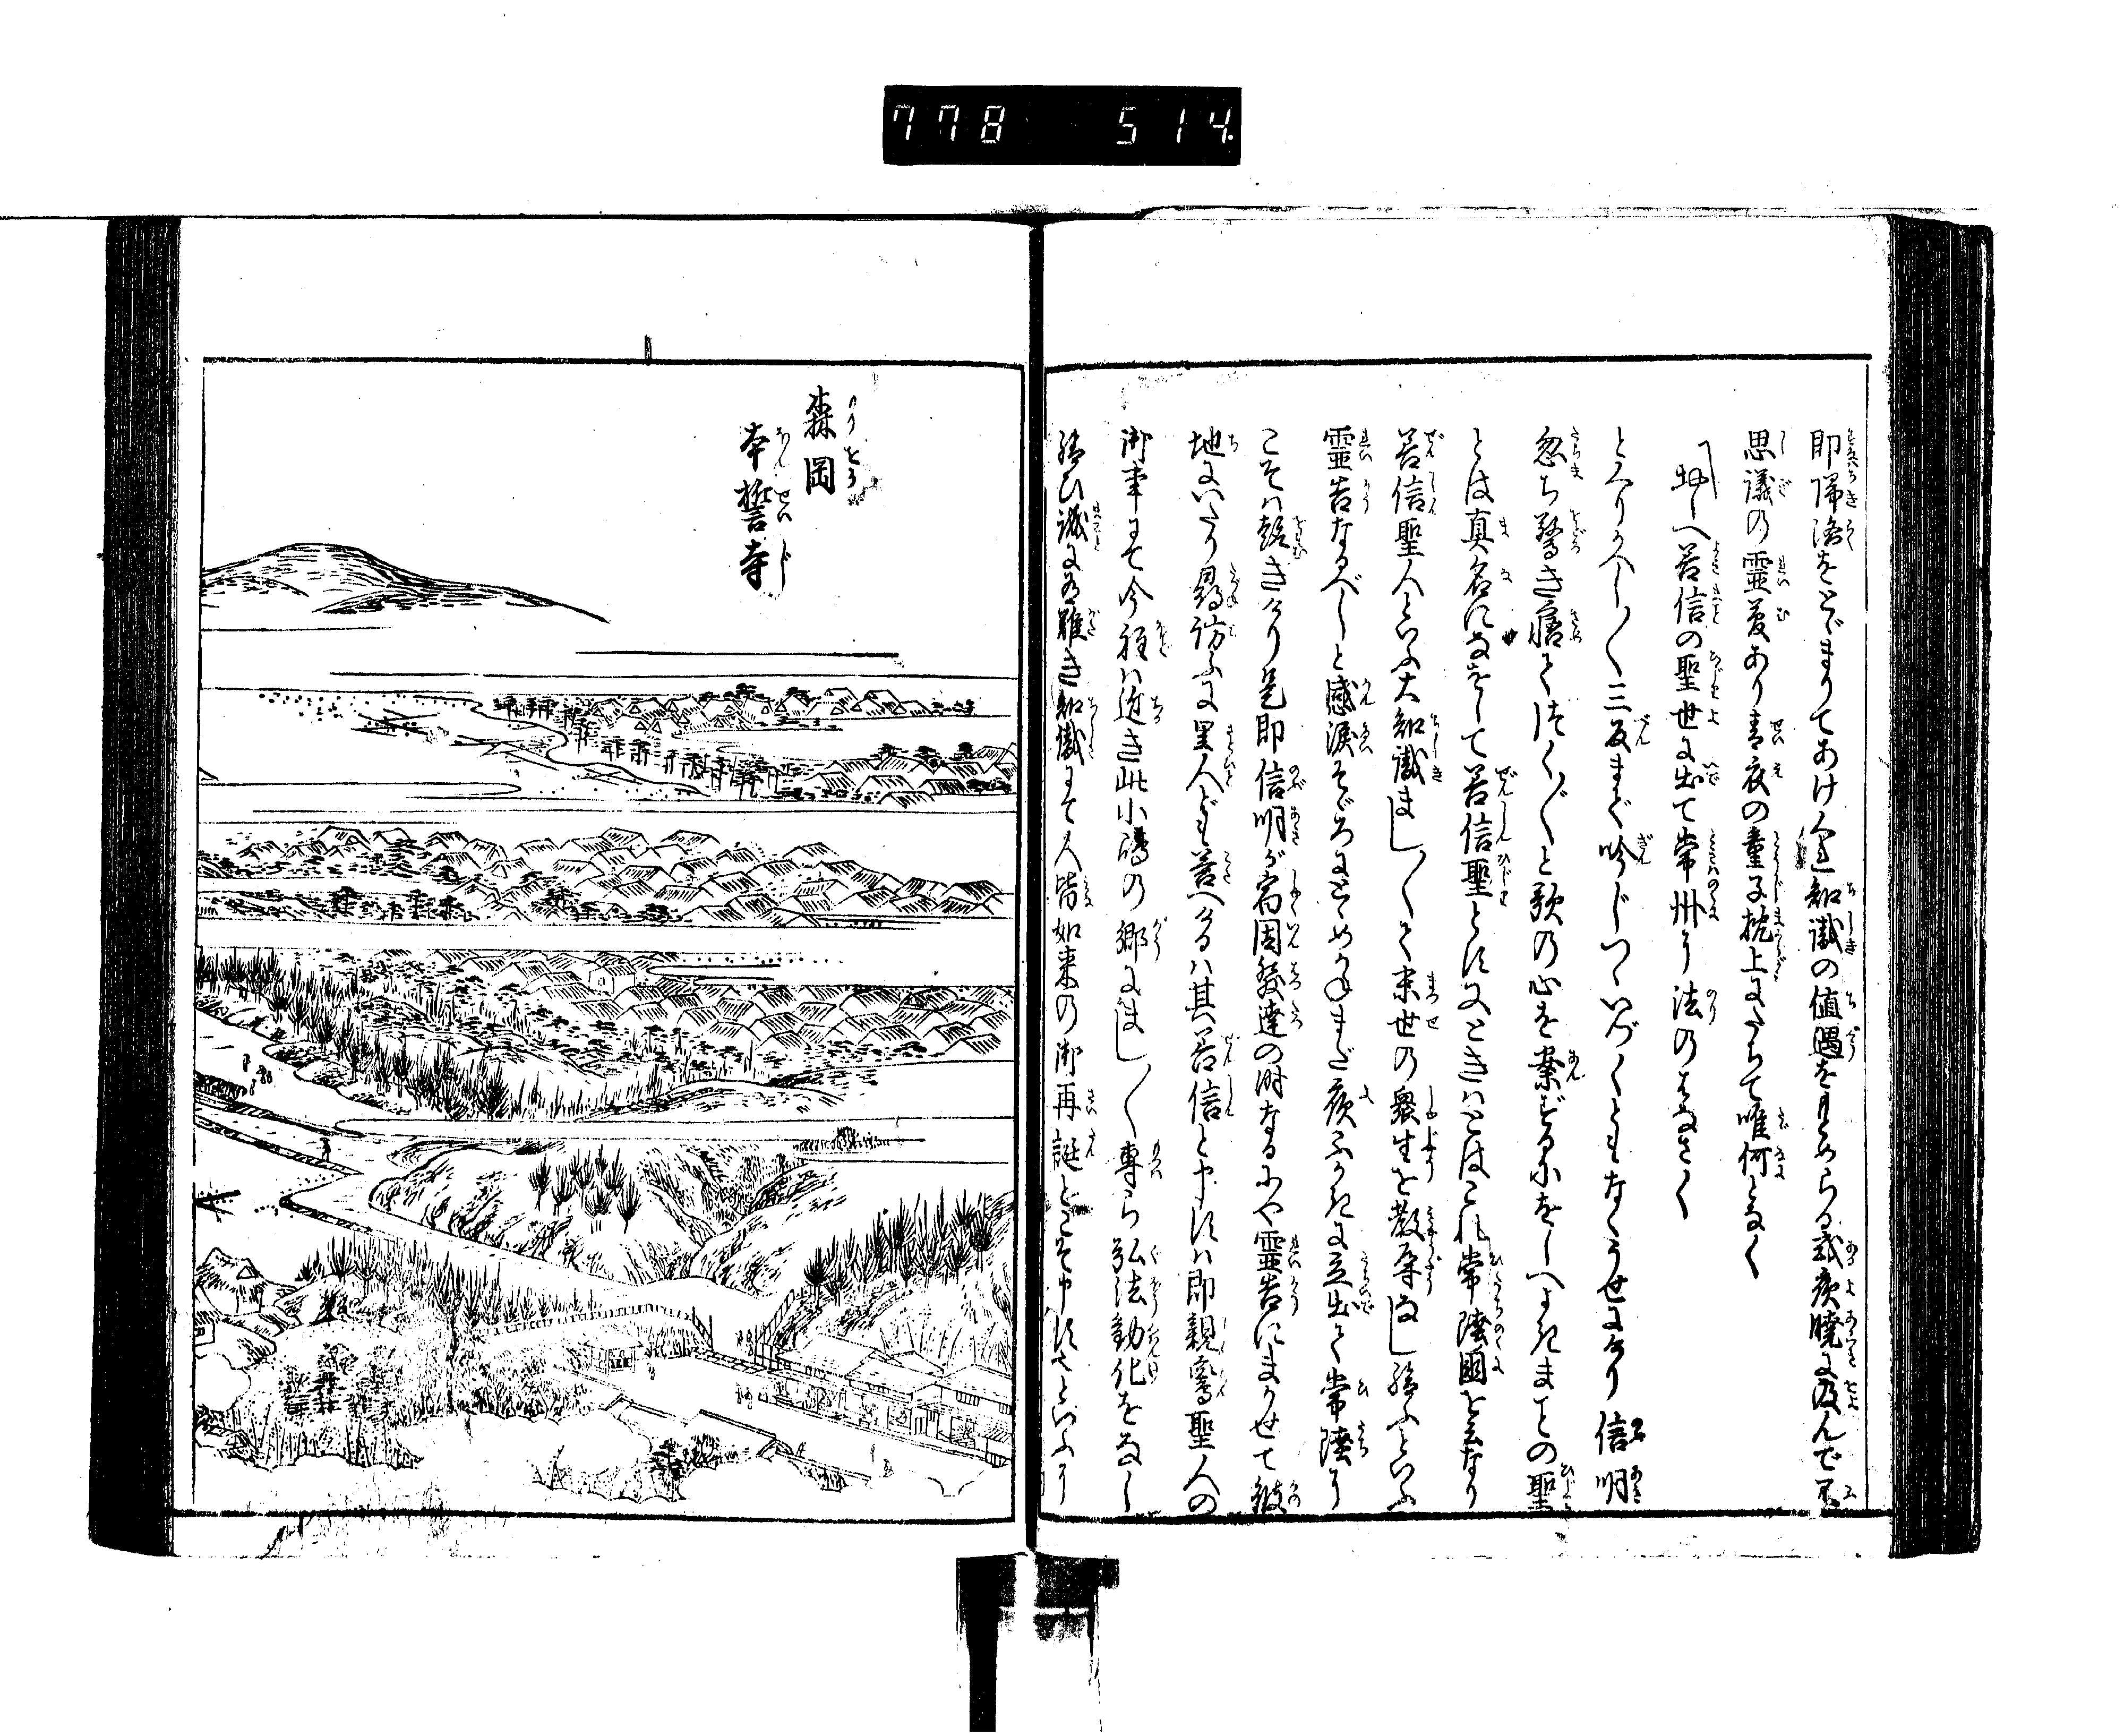 778 514
即帰洛をとゞまりてあけくれ知識の値遇をもとめらる或夜暁に及んで不
思議の霊夢あり青衣の童子枕上にたちて唯何となく
善信の聖世に出て常州に法の
とくりかへし〳〵三反まで吟じつゝいづくともなくうせにけり信明
忽ち驚き寤てつく〴〵と歌の心を案ずるにをしへよきまことの聖
とは真名になをして善信聖とにやときはとはこれ常陸国を云なり
善信聖人といふ大知識まし〳〵て末世の衆生を教導なし給ふといふ
霊告なるべしと感涙そゞろにとゞめかねまだ夜ふかきに立出て常陸に
こそは赴きけり是即信明が宿因発達の時なるにや霊告にまかせて彼
地にいたり尋訪ふに里人ども答へけるは其善信と申すは即親鸞聖人の
御事にて今程は近き此小嶋の郷にまし〳〵専ら弘法勧化をなし
給ひ誠に有難き知識にて人皆如来の御再誕とこそ申すさといふに
森岡
本誓寺